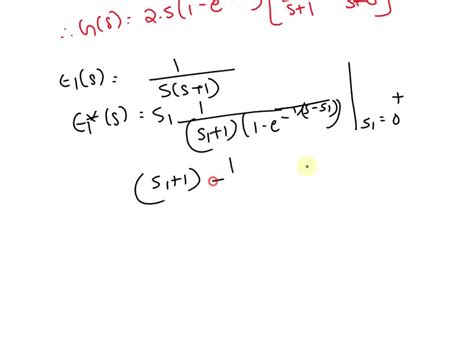 ∴ G(s): 2.5(1-e ) [ s+1
E1(s) = 1 / s(s+1)
E1*(s) = s1 1 / (s1+1)(1-e^-1(s-s1)) | s1=0 +
(s1+1) - 1